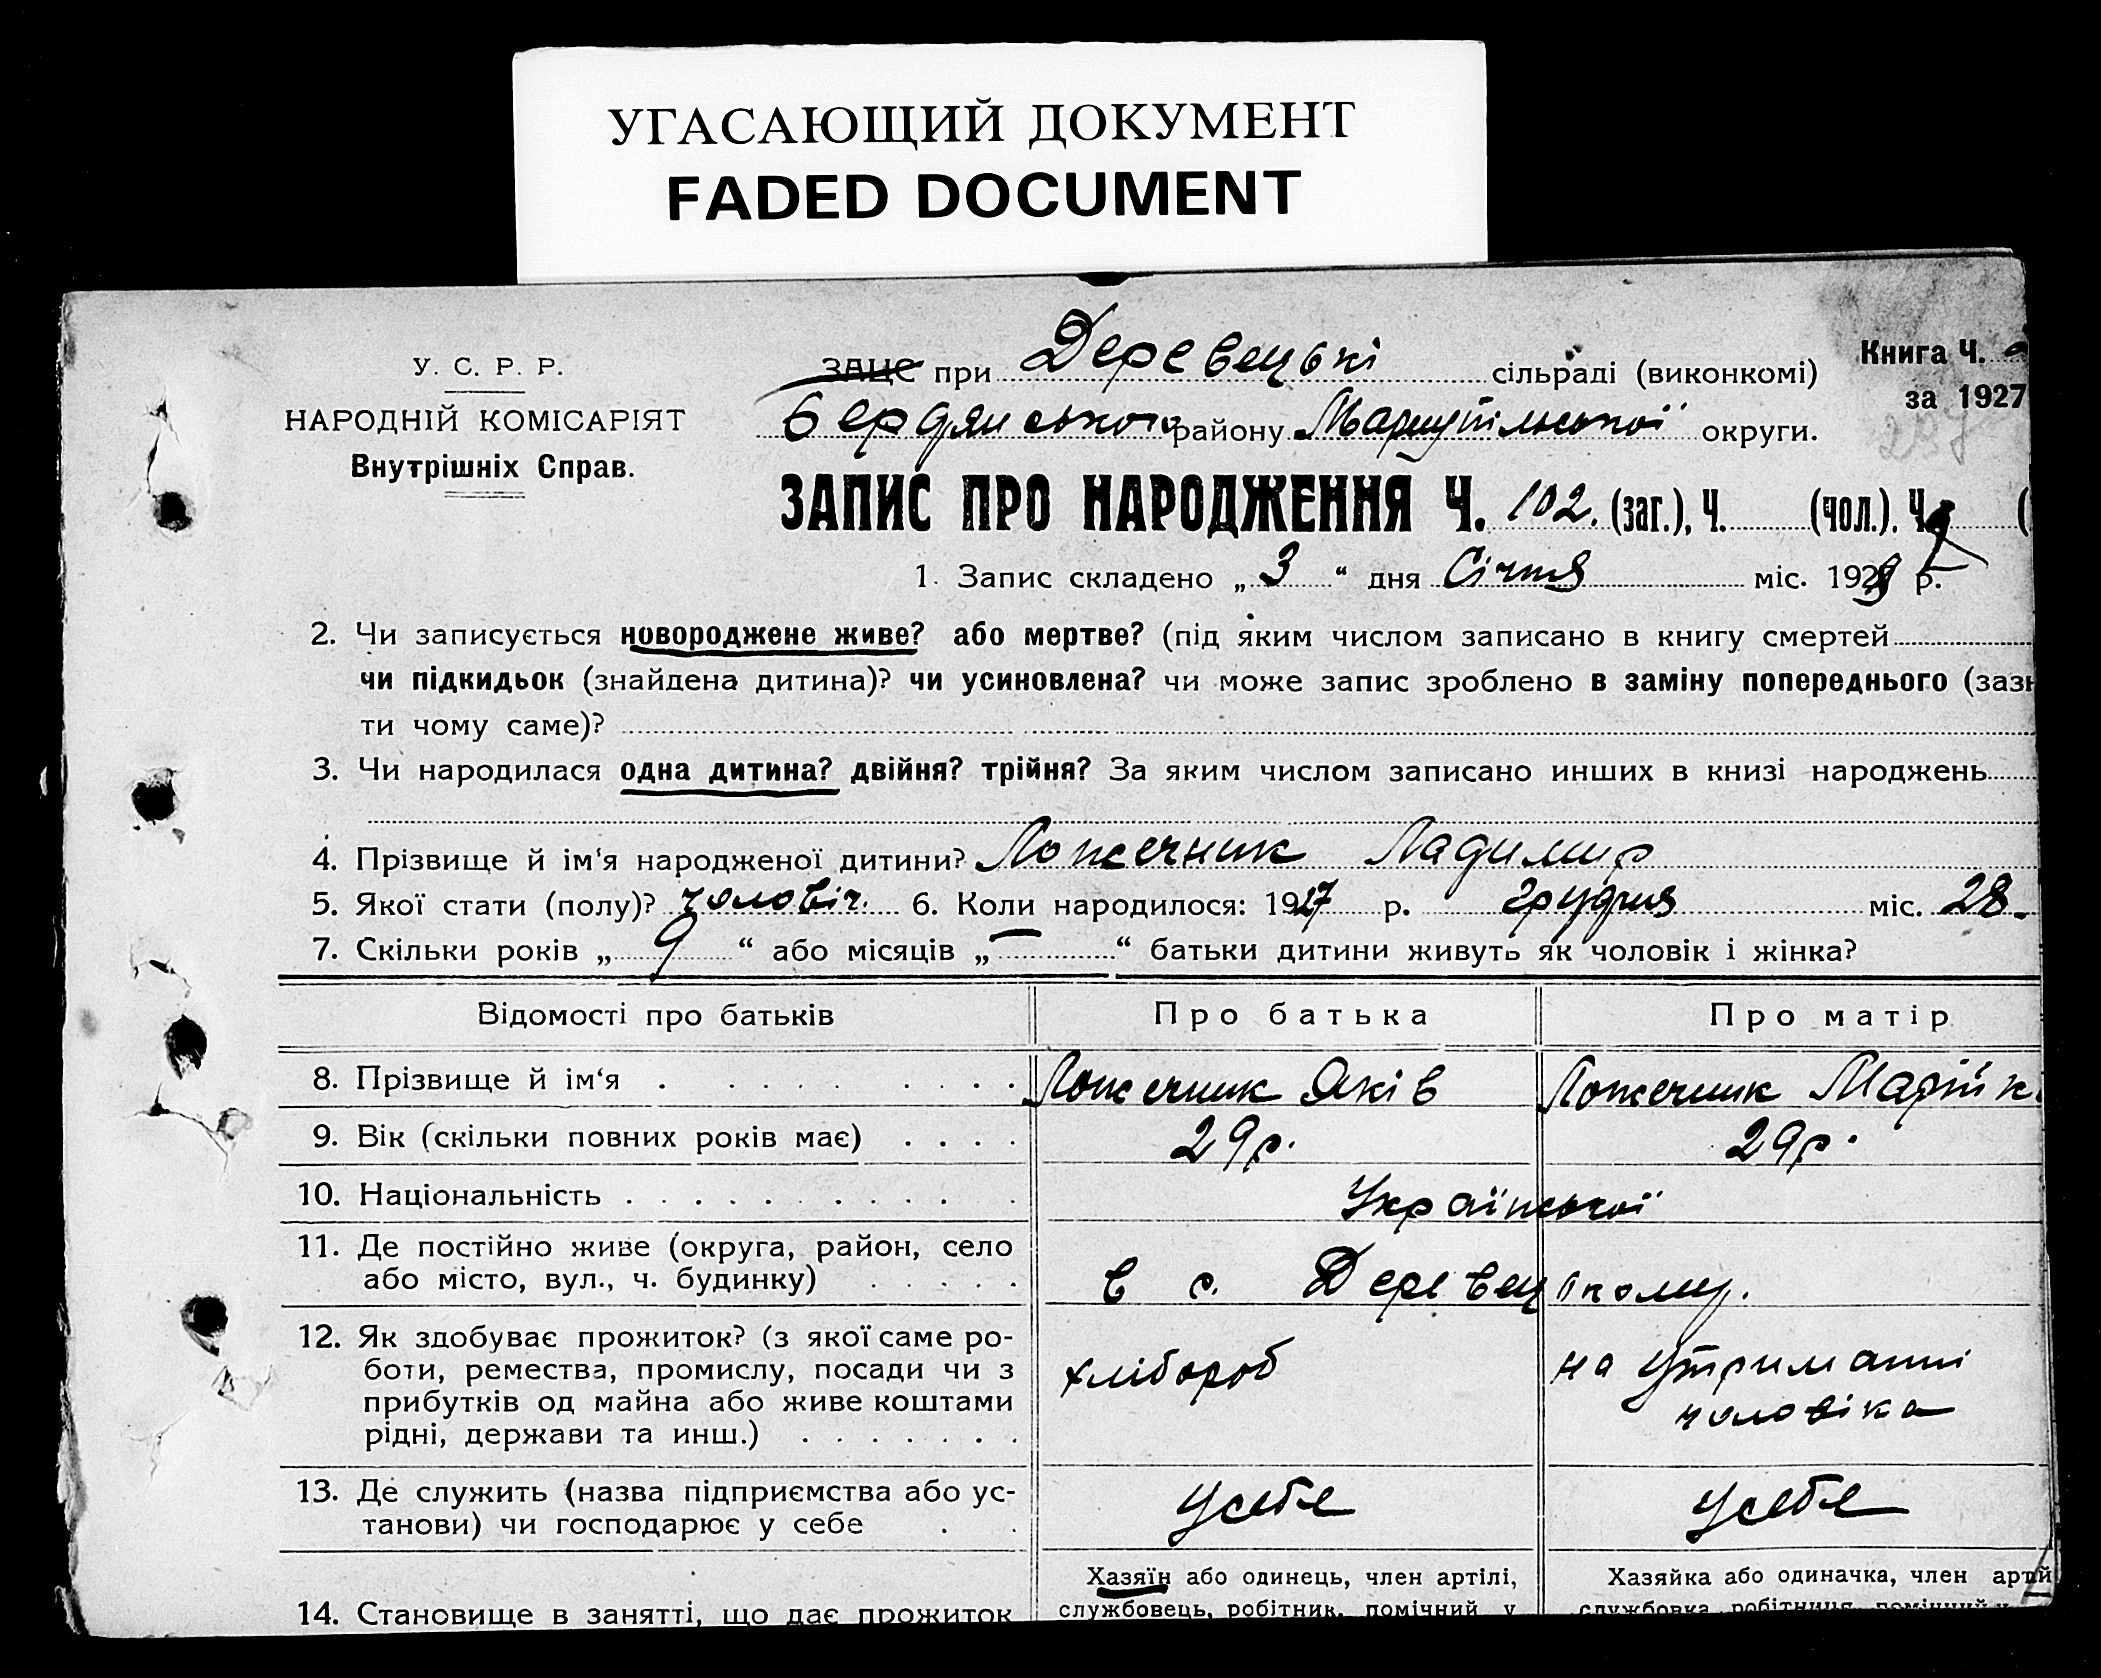 УГАСАЮЩИЙ ДОКУМЕНТ
FADED DOCUMENT
У. С. Р. Р.
НАРОДНІЙ КОМІСАРІЯТ
Внутрішніх Справ.
ЗАЦС при Деревецькі сільраді (виконкомі)
Бердянського району Маріупільської округи.
Книга Ч.
за 1927
287
ЗАПИС ПРО НАРОДЖЕННЯ Ч. 102. (заг.), Ч. (чол.). Ч. (
1. Запис складено „ 3 “ дня Січня міс. 1928 р.
2. Чи записується новороджене живе? або мертве? (під яким числом записано в книгу смертей
чи підкидьок (знайдена дитина)? чи усиновлена? чи може запис зроблено в заміну попереднього (заз
ти чому саме)?
3. Чи народилася одна дитина? двійня? трійня? За яким числом записано инших в книзі народжень
4. Прізвище й ім'я народженої дитини? Ложечник Ладимир
5. Якої стати (полу)? чоловіч. 6. Коли народилося: 1927 р. грудня міс. 28
7. Скільки років „ 9 “ або місяців „ — “ батьки дитини живуть як чоловік і жінка?
Відомості про батьків Про батька Про матір
8. Прізвище й ім'я Ложечник Яків Ложечник Марійк
9. Вік (скільки повних років має) 29 р. 29 р.
10. Національність Української
11. Де постійно живе (округа, район, село
або місто, вул., ч. будинку) в с. Деревецькому.
12. Як здобуває прожиток? (з якої саме ро-
боти, ремества, промислу, посади чи з
прибутків од майна або живе коштами
рідні, держави та инш.)
хлібороб
на утриманні
чоловіка
13. Де служить (назва підприємства або ус-
танови) чи господарює у себе
Усебе Усебе
14. Становище в занятті, що дає прожиток
Хазяїн або одинець, член артілі,
службовець, робітник, помічний у
Хазяйка або одиначка, член артій
службовка, робітниця, помічний у